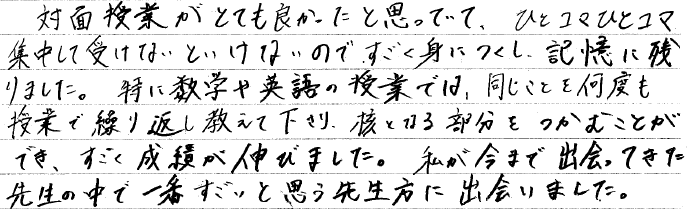 対面授業がとても良かったと思っていて、ひとコマひとコマ
集中して受けないといけないのですごく身につくし、記憶に残
りました。特に数学や英語の授業では、同じことを何度も
授業で繰り返し教えて下さり、核となる部分をつかむことが
でき、すごく成績が伸びました。私が今まで出会ってきた
先生の中で一番すごいと思う先生方に出会いました。